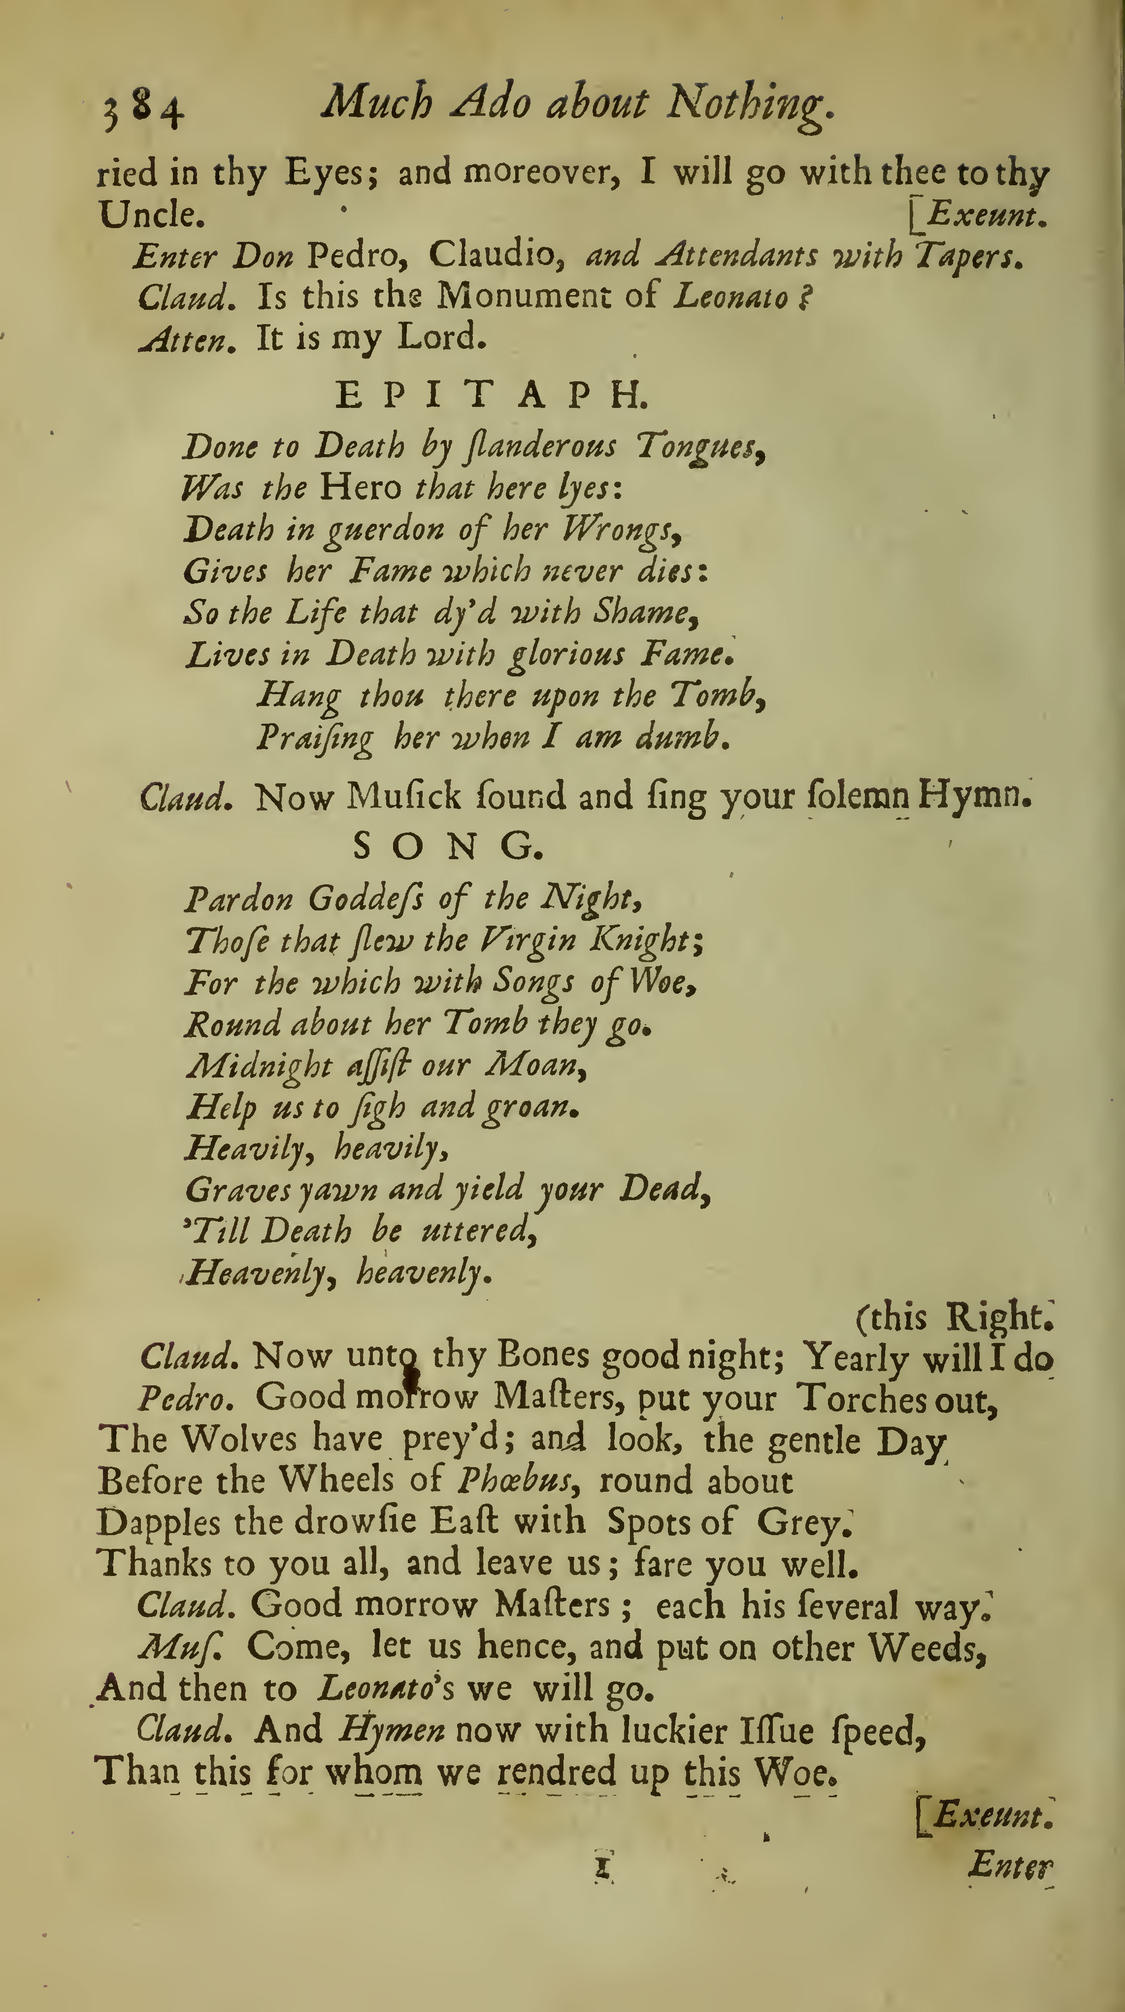 384 Much Ado about Nothing.
ried in thy Eyes; and moreover, I will go with thee to thy
Uncle. [Exeunt.
Enter Don Pedro, Claudio, and Attendants with Tapers.
Claud. Is this the Monument of Leonato?
Atten. It is my Lord.
EPITAPH.
Done to Death by ſlanderous Tongues,
Was the Hero that here lyes:
Death in guerdon of her Wrongs,
Gives her Fame which never dies:
So the Life that dy'd with Shame,
Lives in Death with glorious Fame.
Hang thou there upon the Tomb,
Praiſing her when I am dumb.
Claud. Now Muſick ſound and ſing your ſolemn Hymn.
SONG.
Pardon Goddeſs of the Night,
Thoſe that ſlew the Virgin Knight;
For the which with Songs of Woe,
Round about her Tomb they go.
Midnight aſſiſt our Moan,
Help us to ſigh and groan.
Heavily, heavily,
Graves yawn and yield your Dead,
'Till Death be uttered,
Heavenly, heavenly.
(this Right.
Claud. Now unto thy Bones good night; Yearly will I do
Pedro. Good morrow Maſters, put your Torches out,
The Wolves have prey'd; and look, the gentle Day
Before the Wheels of Phœbus, round about
Dapples the drowſie Eaſt with Spots of Grey.
Thanks to you all, and leave us; fare you well.
Claud. Good morrow Maſters; each his ſeveral way.
Muſ. Come, let us hence, and put on other Weeds,
And then to Leonato's we will go.
Claud. And Hymen now with luckier Iſſue ſpeed,
Than this for whom we rendred up this Woe.
[Exeunt.
I Enter